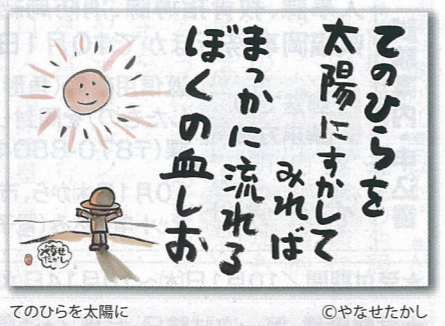 てのひらを
太陽にすかして
みれば
まっかに流れる
ぼくの血しお
やなせ
たかし
てのひらを太陽に
©やなせたかし